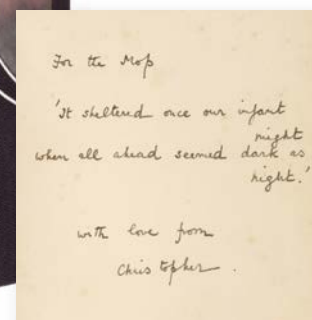 For the Mop
'It sheltered once our infant
might
when all ahead seemed dark as
night.'
with love from
Christopher.